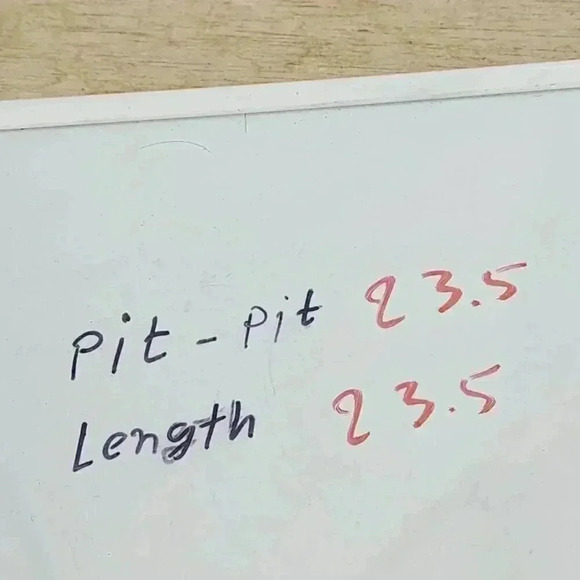 Pit - Pit 23.5
Length 23.5